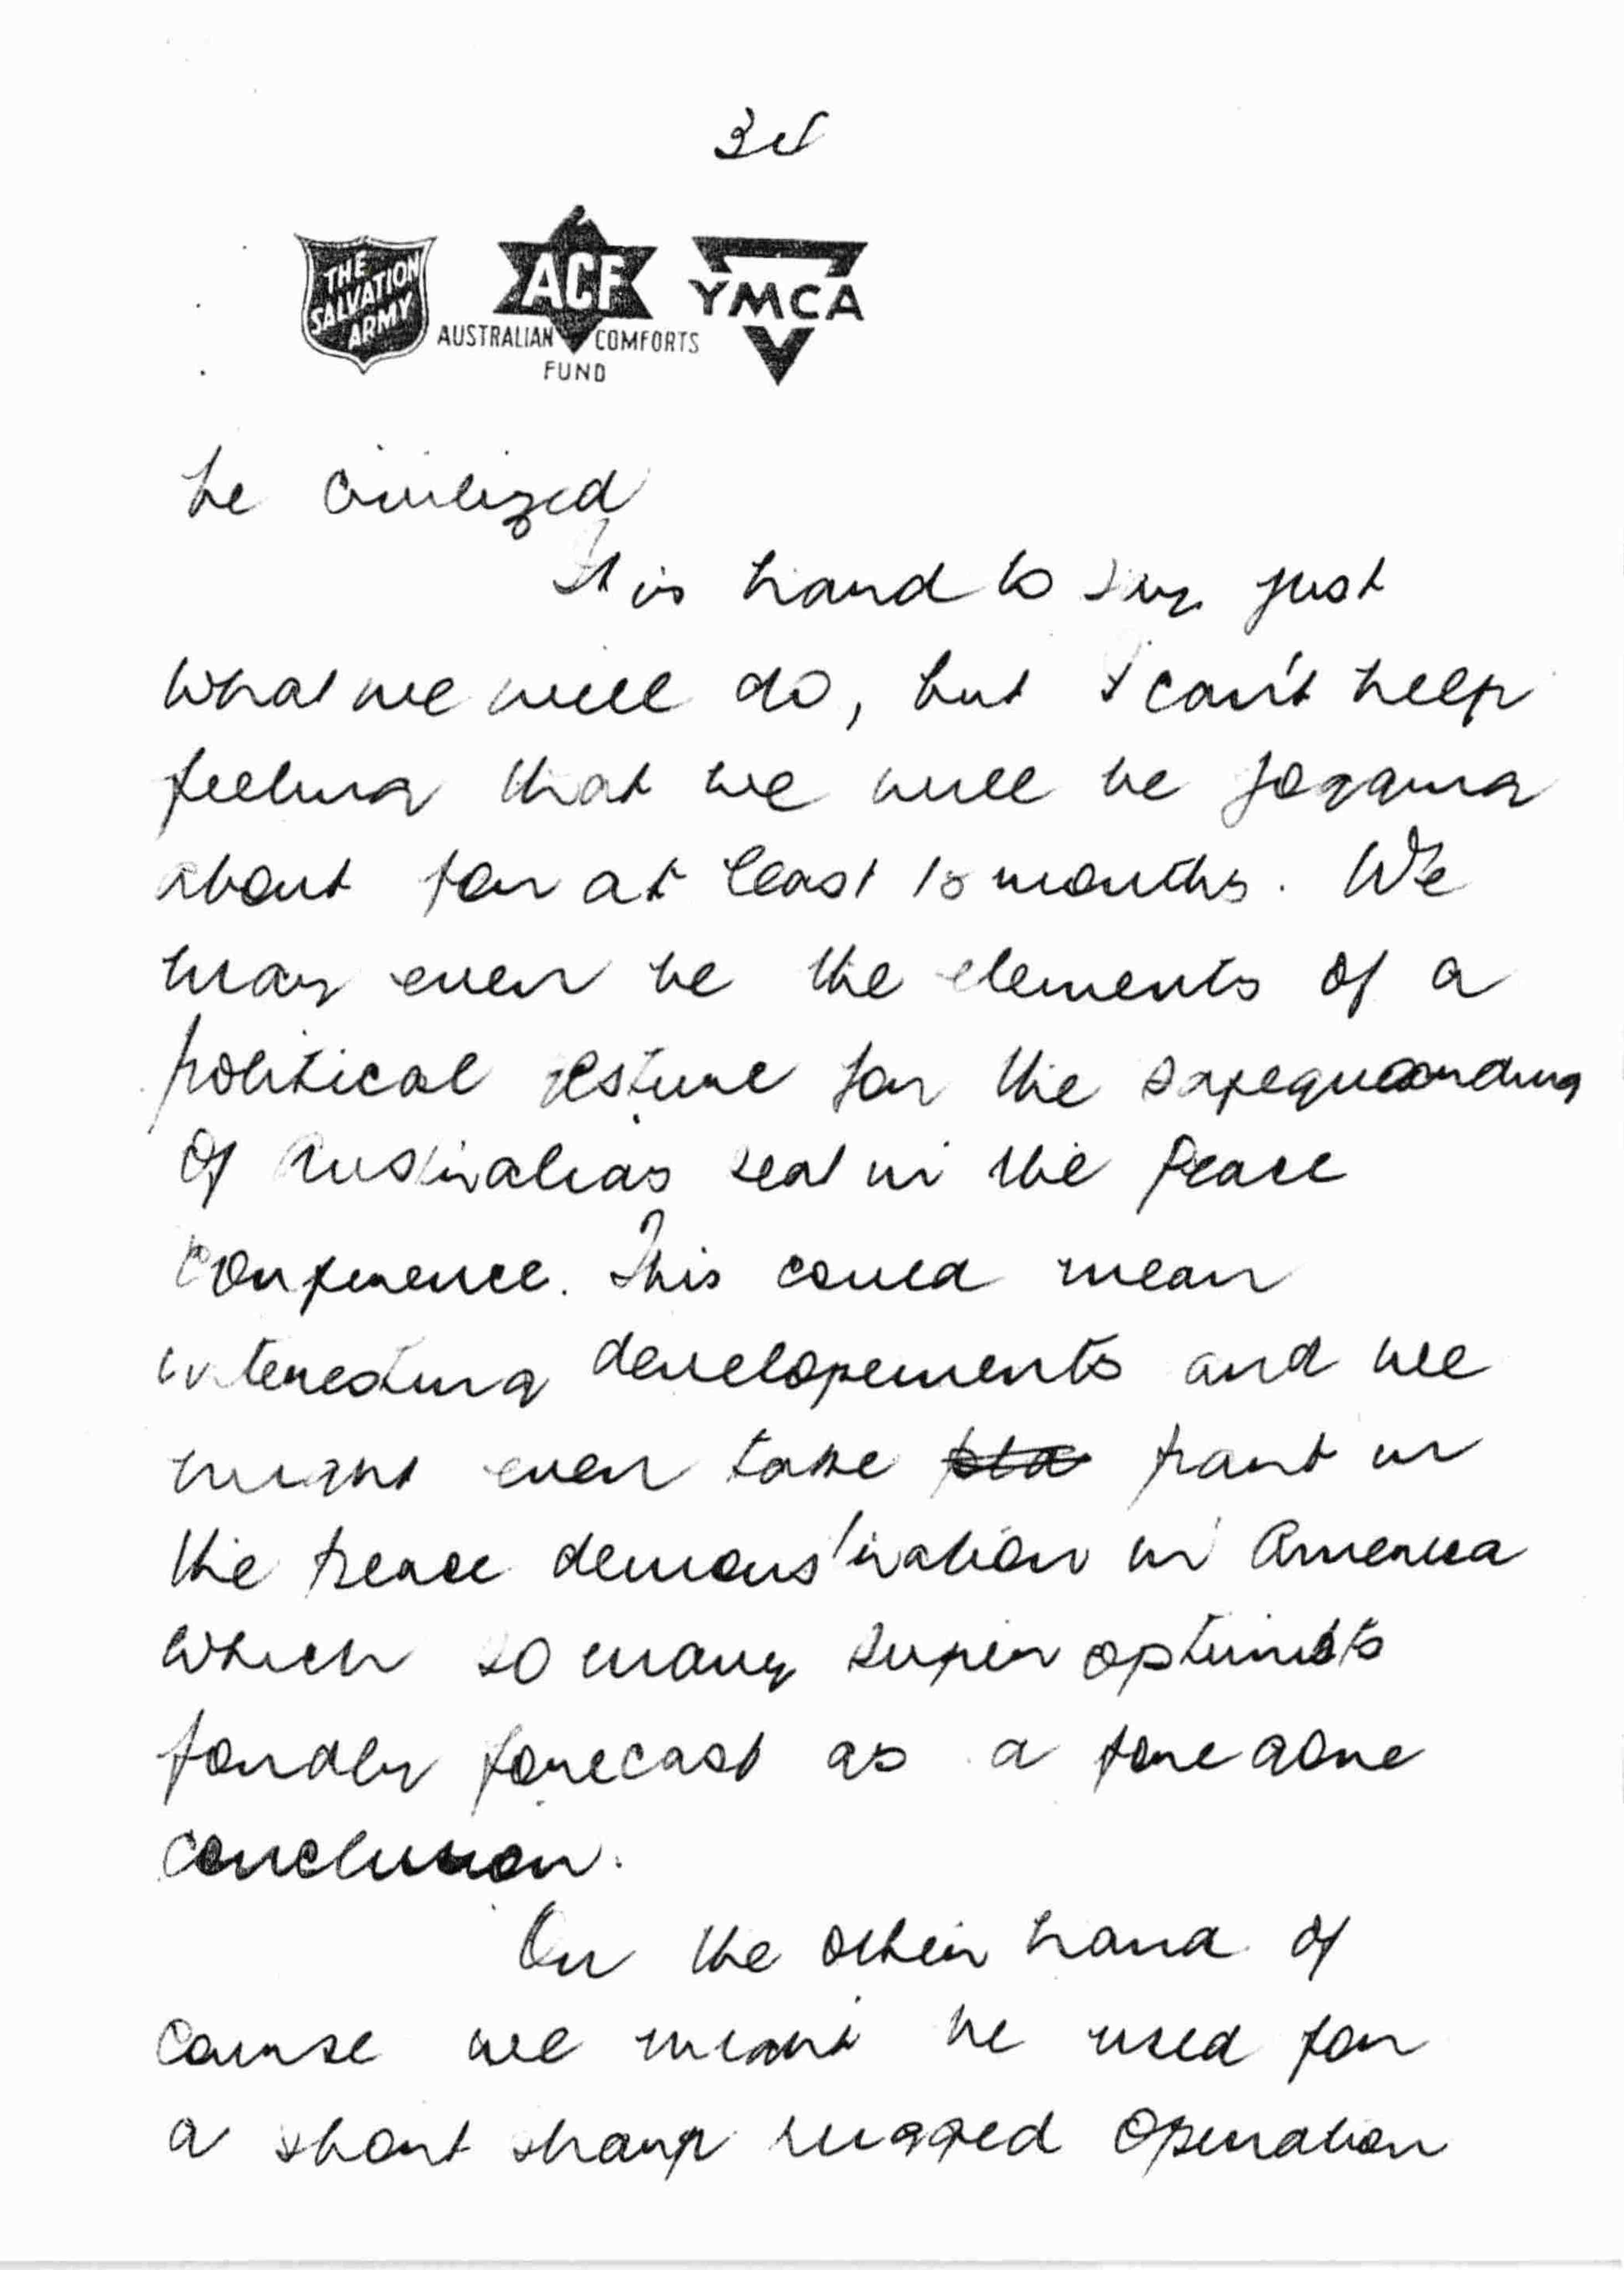 THE
SALVATION
ARMY
ACF
AUSTRALIAN COMFORTS
FUND
YMCA
be civilized
It is hard to say just
what we will do, but I can't help
feeling that we will be jogging
about for at least 18 months. We
may even be the elements of a
political gesture for the safeguarding
of Australias seat in the peace
conference. This could mean
interesting developements and we
might even take pla part in
the peace demonstration in America
which so many super optimists
fondly forecast as a fore gone
conclusion.
On the other hand of
course we might be used for
a short sharp rugged operation